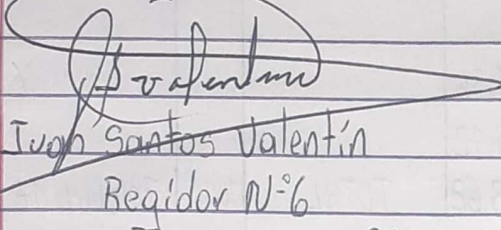 Ivan Santos Valentín
Regidor N°6